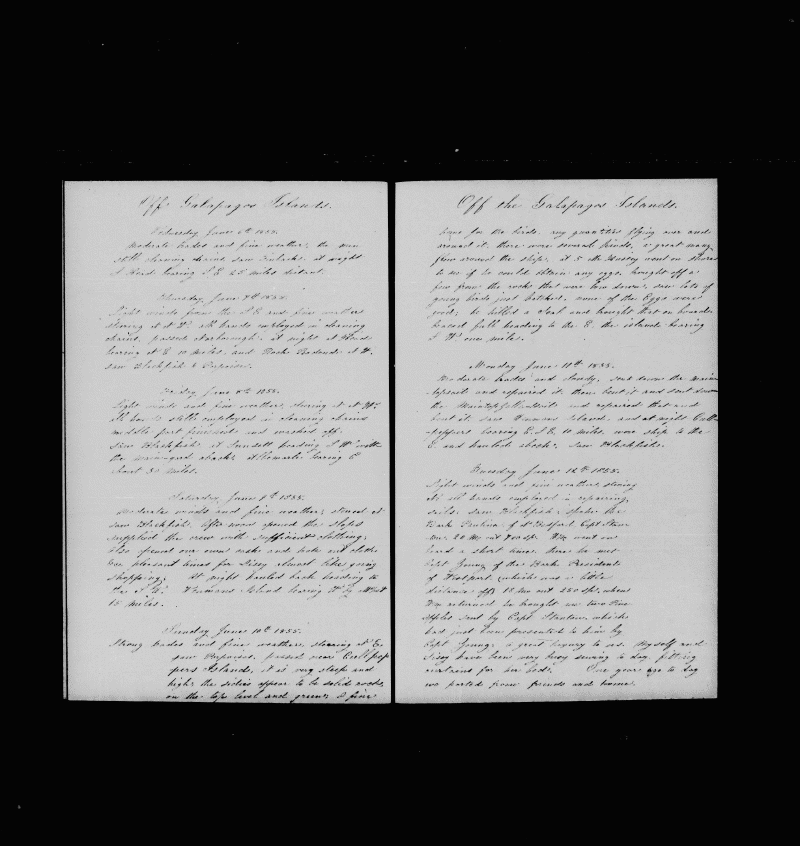 Off Galapagos Islands.
Wednesday June 6th 1855.
Moderate trades and fine weather, the men
still cleaning chains saw Finbacks, at night
I Hood bearing S E 25 miles distant.
Thursday June 7th 1855.
Light winds from the S E and fine weather
steering it at W. all hands employed in cleaning
chains, passed at night at
bearing at E 10 miles, and Rock Redondo at W.
saw Blackfish & Porpoises.
Friday June 8th 1855.
Light winds and fine weather, steering it at
all hands still employed in cleaning chains
middle part finished and washed off.
saw Blackfish, at Sundown heading S W with
the main-yard aback; Albemarle bearing E
about 30 miles.
Saturday June 9th 1855.
Moderate winds and fine weather; steered at
saw Blackfish. Afternoon opened the slops
supplied the crew with sufficient clothing;
also opened our own and took out cloth
pleasant times for Sissy almost like going
shopping; At night hauled back heading to
the S W. Wenmans Island bearing W by N
15 miles.
Sunday June 10th 1855.
Strong trades and fine weather, steering at
saw Porpoises, passed near Cullpep
pers Island, it is very steep and
high; the sides appear to be solid rocks,
on the top level and green; a fine
Off the Galapagos Islands.
home for the birds. any quantities flying over and
around it, there were several kinds, a great many
flew around the ship, at 5 Mr Huxley went on shore
to see if he could obtain any eggs, brought off a
few from the rocks that were low down, saw lots of
young birds just hatched. some of the Eggs were
good; he killed a Seal and brought that on board.
braced full heading to the E. the island bearing
S W one miles.
Monday June 11th 1855.
Moderate trades and steady, sent down the main
topsail and repaired it, then bent it and sent down
the and repaired that and
bent it. saw Wenmans Island, and at night Cull-
peppers bearing E S E 10 miles. wore ship to the
E and hauled aback. saw Blackfish.
Tuesday June 12th 1855.
Light winds and fine weather, steering
at all hands employed in repairing
sails. saw Blackfish, spoke the
Bark of N Bedford Capt
20 Mo out Wm went on
board a short time, there he met
Capt Young of the Bark President
of Westport, (which was a little
distance off) 18 mo out 250 sp. when
Wm returned he brought us two Pine
Apples sent by Capt. which
had just been presented to him by
Capt Young; a great luxury to us. Myself and
Sissy have been very busy sewing to day, fitting
curtains for her bed. One year ago to day
we parted from friends and home.